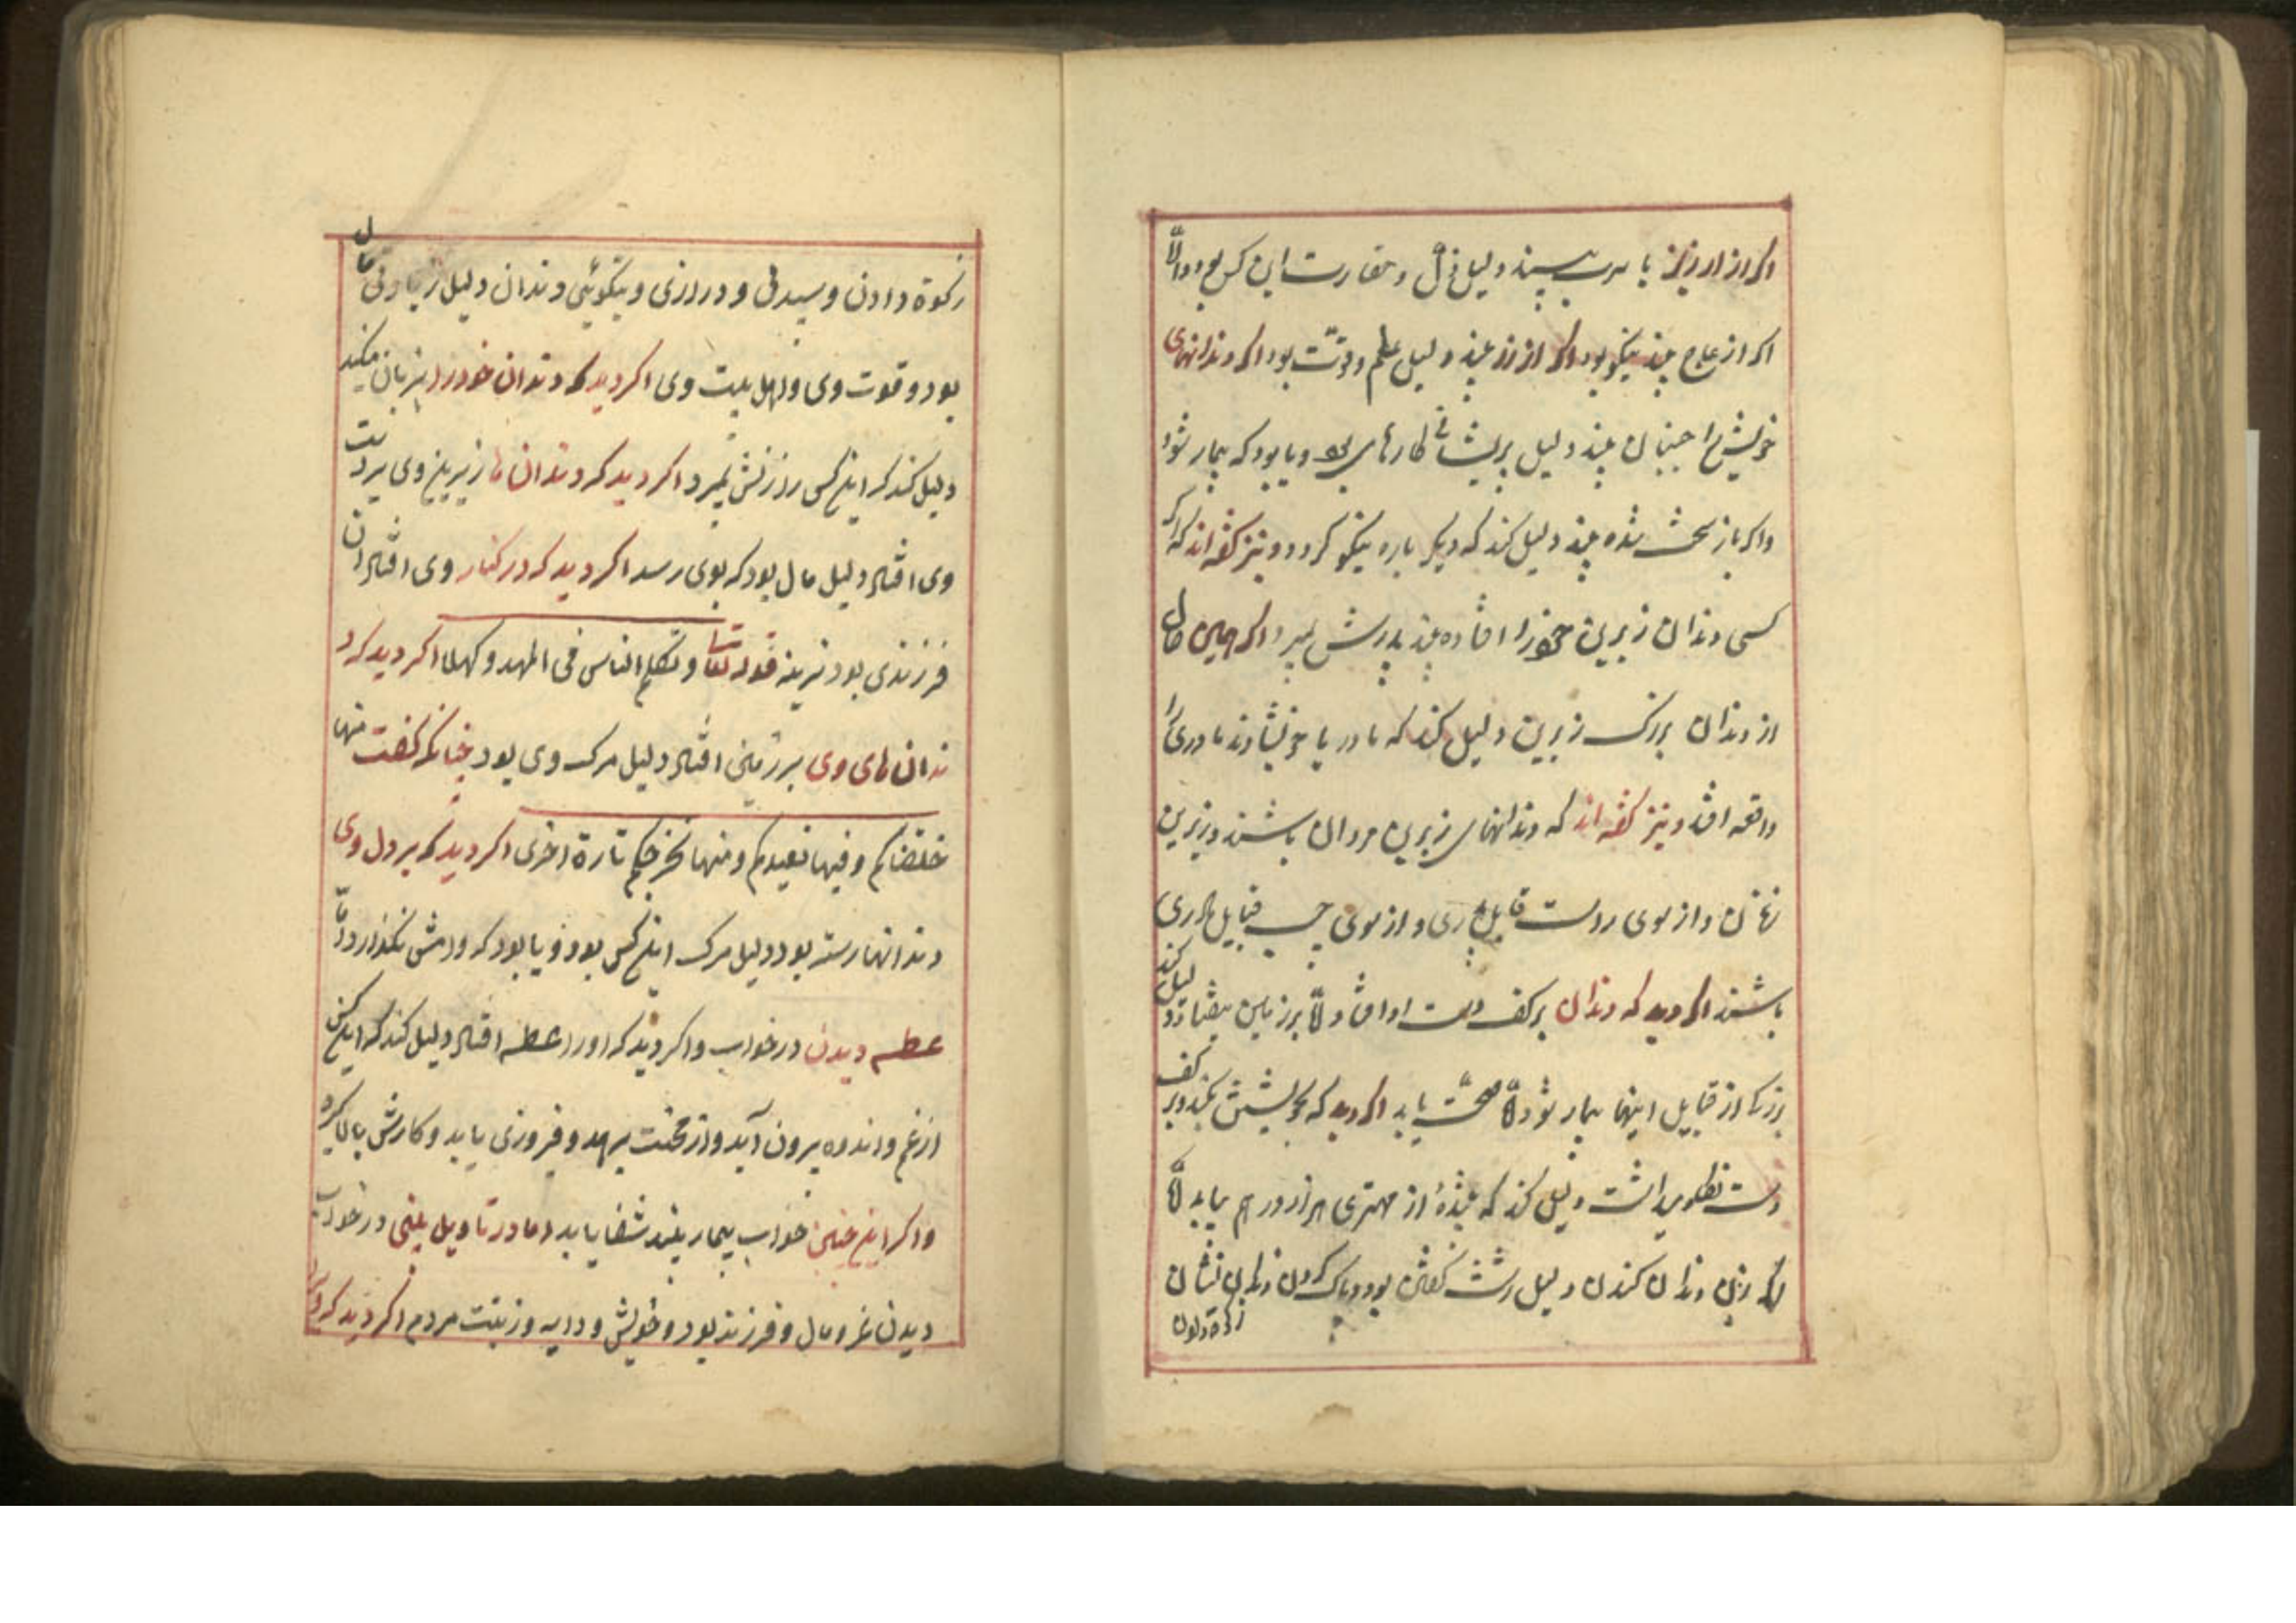 اکر از ارزیز یا سرب بیند دلیل ذل و حقارت این کس بود والّا
اکر از عاج بیند نیکو بود اکر از زر بیند دلیل علم و دقّت بود اکر دندانهای
خویش را جنبان بیند دلیل پریشانی کارهای بود و یا بود که بیمار شود
واکر باز سخت شده بیند دلیل کند که دیگر باره نیکو کردد و نیز کفته اند که اکر
کسی دندان زبرین خود را افتاده بیند پدرش بمیرد اکر همین حال
از دندان بزرک زبرین دلیل کند که مادر یا خویشاوند مادری را
واقعه افتد و نیز کفته اند که دندانهای زبرین مردان باشند و زیرین
زنان و از سوی راست قبایل پدری و از سوی چپ قبایل مادری
باشند اکر دید که دندان بر کف دست او افتاد والّا بر زمین بیفتاد دلیل کند
بزرکا از قبایل اینها بیمار شود والّا صحّت یابد اکر دید که بخویشتن بکند و بر کف
دست نهاد دلیل کند که از مهتری هزار درهم بیابد الّا
دندان کندن دلیل زشت کفتن بود و پاک کردن دندان نشان
زکوة دادن
زکوة دادن و سپیدی و درازی و نیکوئی دندان دلیل زیادتی مال
بود و قوت وی و اهل بیت وی اکر دید که دندان خود را بزبان میکند
دلیل کند که اینکس را زنش بمیرد اکر دید که دندان ها زیرین وی بر دست
وی افتاد دلیل مال بود که بوی رسد اکر دید که در کنار وی افتاد آن
فرزندی بود نرینه قوله تعا و تکلم الناس فی المهد و کهلا اکر دید که د
ندان های وی بر زمین افتاد دلیل مرک وی بود چنانکه کفت منها
خلقناکم و فیها نعیدکم و منها نخرجکم تارة اخری اکر دید که بر دل وی
دندانها رسته بود دلیل مرک اینکس بود و یا بود که وامش بکذارد امّا
عطسه دیدن در خواب واکر دید که او را عطسه افتاد دلیل کند که اینکس
از غم و اندوه بیرون آید و از محنت برهد و فیروزی یابد و کارش بالا کیرد
و اکر این چنین خواب بیمار بیند شفا یابد اما در تاویل بینی در خواب
دیدن عز و مال و فرزند بود و خویش و دایه و زینت مردم اکر دید که